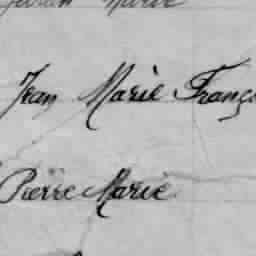 Marie
Jean Marie Franç
Pierre Marie